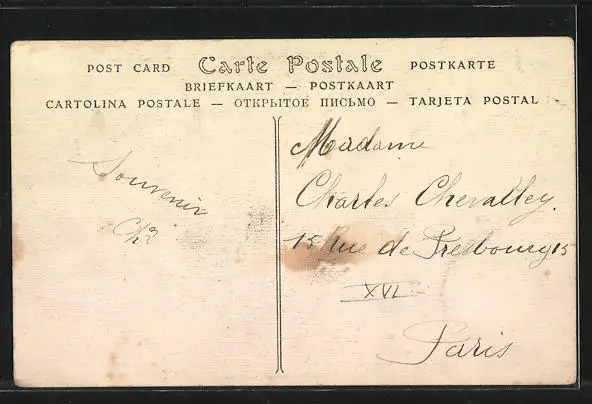 POST CARD Carte Postale POSTKARTE
BRIEFKAART — POSTKAART
CARTOLINA POSTALE — ОТКРЫТОЕ ПИСЬМО — TARJETA POSTAL
Souvenir
Madame
Charles Chevalley.
15 Rue de Presbourg 15
XVI
Paris